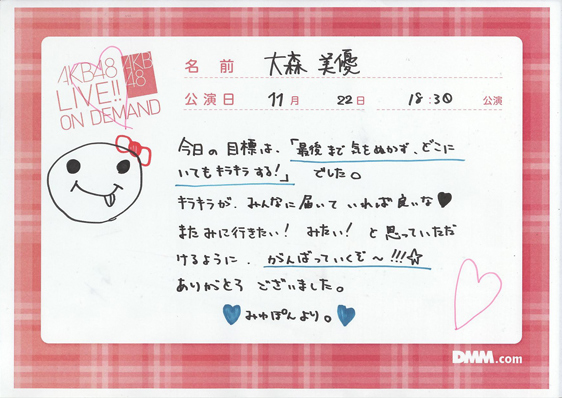 AKB48
LIVE!!
ON DEMAND
AKB
48
名前 大森美優
公演日 11月 22日 18:30 公演
今日の目標は、「最後まで気をぬかず、どこに
いてもキラキラする!」でした。
キラキラが、みんなに届いていれば良いな♥
またみに行きたい! みたい! と思っていただ
けるように、がんばっていくぞ〜!!!☆
ありがとうございました。
💙みゆぽんより。💙
DMM.com